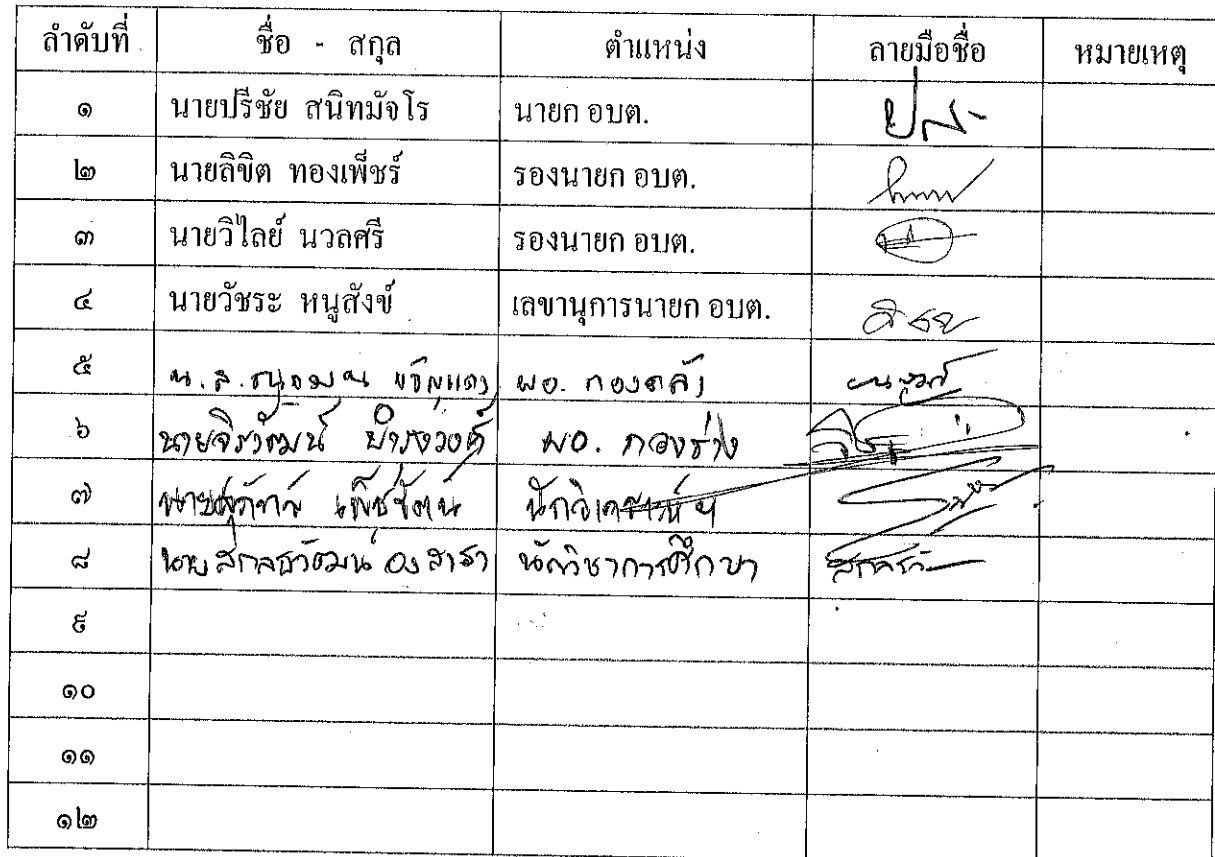 ลำดับที่ ชื่อ - สกุล ตำแหน่ง ลายมือชื่อ หมายเหตุ
๑ นายปรีชัย สนิทมัจโร นายก อบต.
๒ นายลิขิต ทองเพ็ชร์ รองนายก อบต.
๓ นายวิไลย์ นวลศรี รองนายก อบต.
๔ นายวัชระ หนูสังข์ เลขานุการนายก อบต.
๕ น.ส. ขวัญแดง ผอ. กองคลัง
๖ นายจิรวัฒน์ ผอ. กองช่าง
๗ เพ็ชรัตน์ นักวิเคราะห์ฯ
๘ นาย นักวิชาการศึกษา
๙
๑๐
๑๑
๑๒